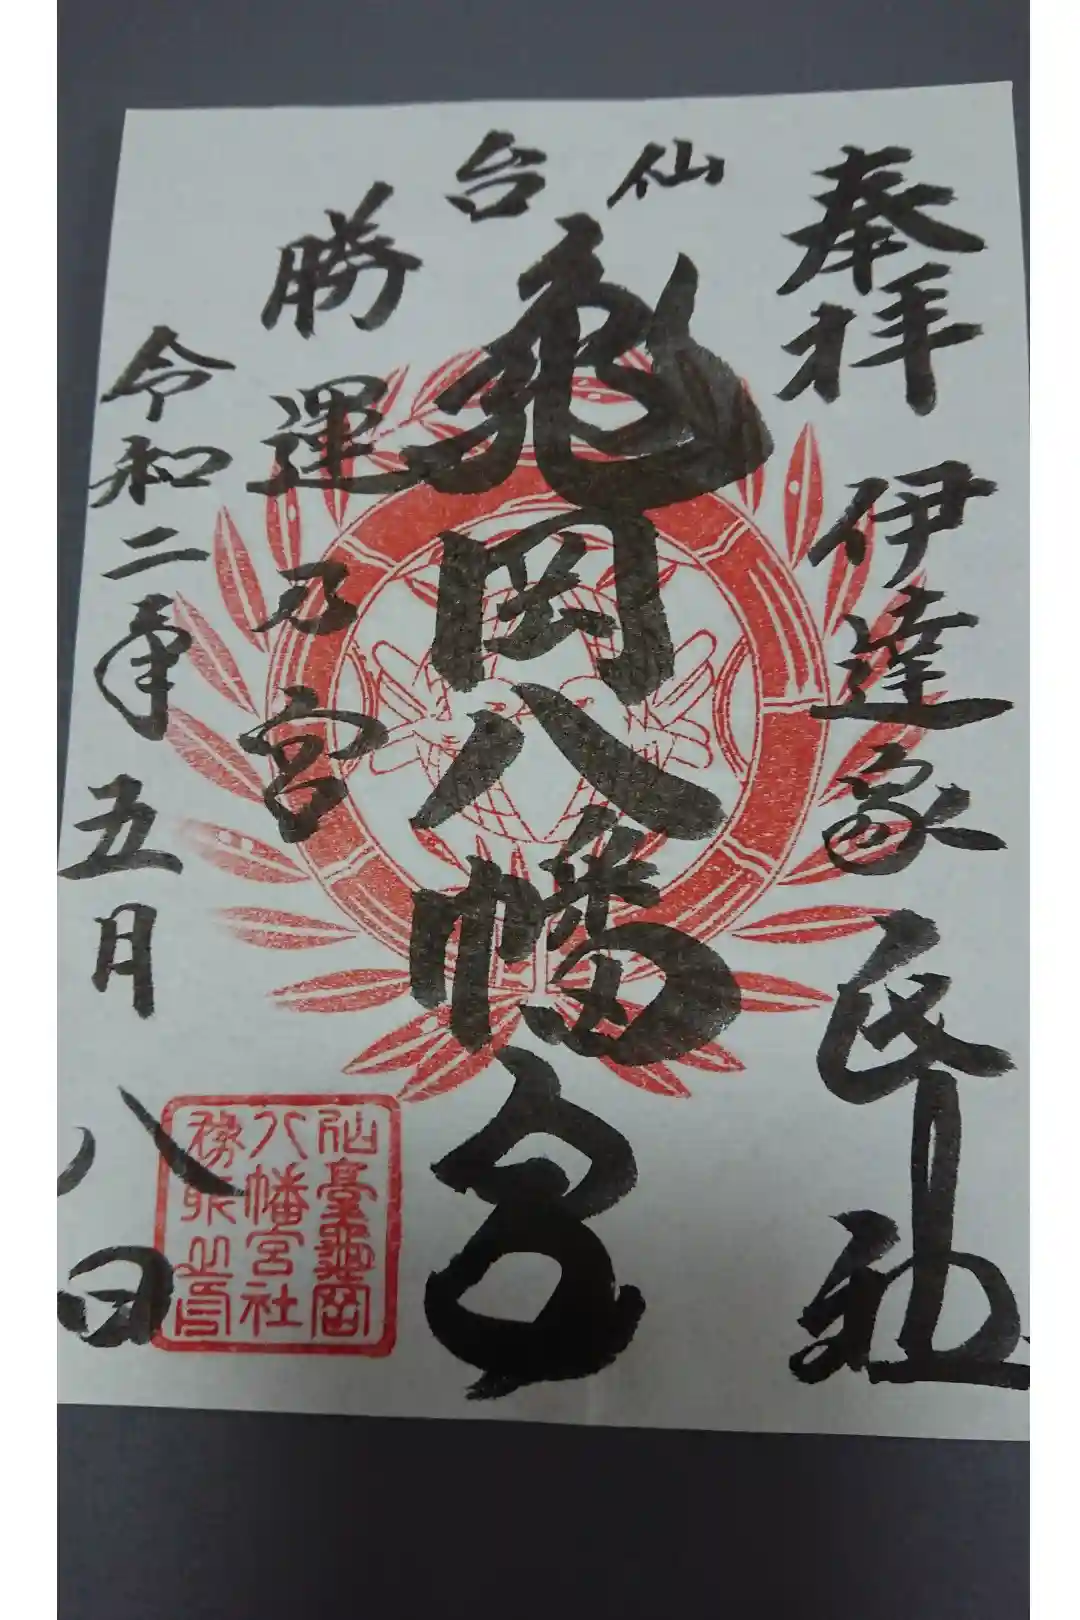 奉拝 伊達家氏神社
仙台
亀岡八幡宮
勝運乃宮
令和二年五月八日
仙臺龜岡
八幡宮社
務所之印